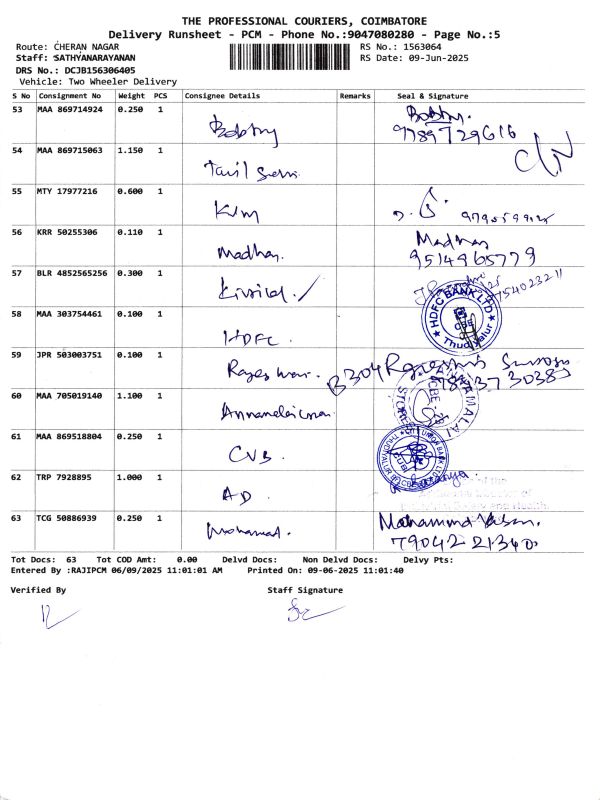 THE PROFESSIONAL COURIERS, COIMBATORE
Delivery Runsheet - PCM - Phone No.:9047080280 - Page No.:5
Route: CHERAN NAGAR RS No.: 1563064
Staff: SATHYANARAYANAN RS Date: 09-Jun-2025
DRS No.: DCJB156306405
Vehicle: Two Wheeler Delivery
S No Consignment No Weight PCS Consignee Details Remarks Seal & Signature
53 MAA 869714924 0.250 1 Bobby Bobby.
9789729616
54 MAA 869715063 1.150 1
55 MTY 17977216 0.600 1
56 KRR 50255306 0.110 1 Madhan. Madhan
9514965779
57 BLR 4852565256 0.300 1
58 MAA 303754461 0.100 1 HDFC HDFC BANK LTD CBE Thudiyalur
59 JPR 503003751 0.100 1 B304
60 MAA 705019140 1.100 1
61 MAA 869518804 0.250 1 CUB
62 TRP 7928895 1.000 1 AD
63 TCG 50886939 0.250 1 Mohamad.
79042 21340
Tot Docs: 63 Tot COD Amt: 0.00 Delvd Docs: Non Delvd Docs: Delvy Pts:
Entered By :RAJIPCM 06/09/2025 11:01:01 AM Printed On: 09-06-2025 11:01:40
Verified By Staff Signature